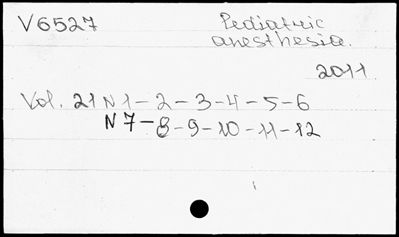 V6527
Pediatric
anesthesia.
2011
Vol. 21 N 1-2-3-4-5-6
N 7-8-9-10-11-12